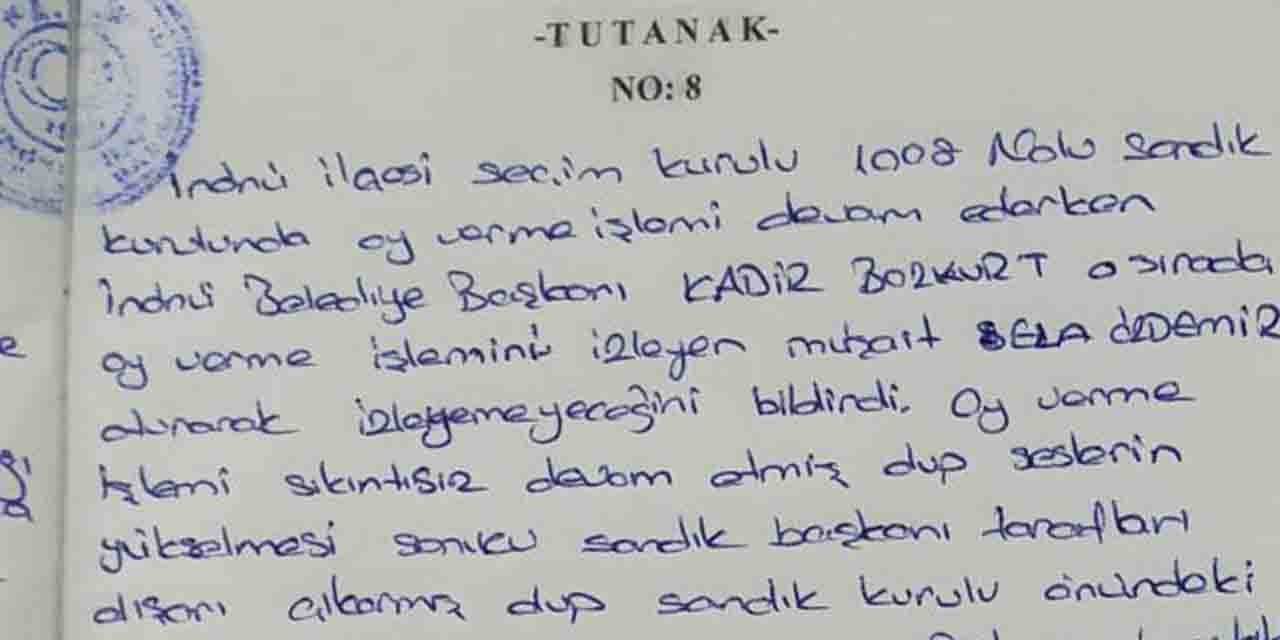 -TUTANAK-
NO: 8
İnönü ilçesi seçim kurulu 1008 Nolu Sandık
kurulunda oy verme işlemi devam ederken
İnönü Belediye Başkanı KADİR BOZKURT o sırada
oy verme işlemini izleyen müşait SELA ÖZDEMİR
oturarak izleyemeyeceğini bildirdi. Oy verme
işlemi sıkıntısız devam etmiş olup seslerin
yükselmesi sonucu sandık başkanı tarafları
dışarı çıkarmış olup sandık kurulu önündeki